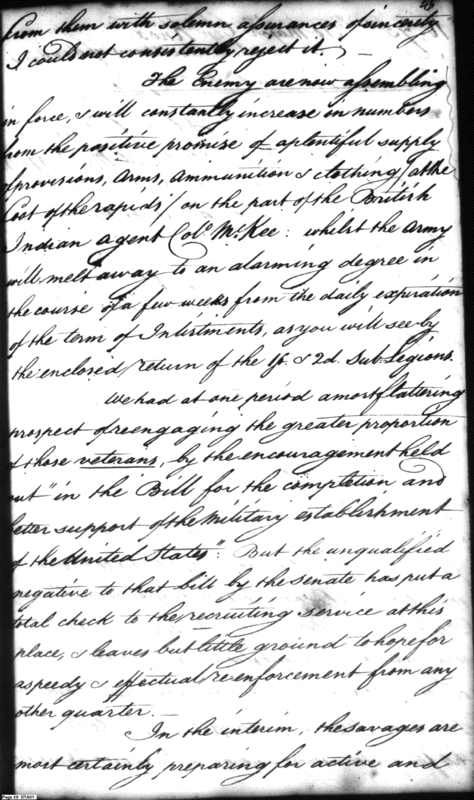 from them with solemn assurances of sincerity
I could not consistently reject it. —
The Enemy are now assembling
in force, & will constantly increase in numbers
from the positive promise of a plentiful supply
of provisions, arms, ammunition & clothing (at the
foot of the rapids) on the part of the British
Indian agent Colo. McKee: whilst the army
will melt away to an alarming degree in
the course of a few weeks from the daily expiration
of the term of Inlistments, as you will see by
the enclosed return of the 1st. & 2d. Sub Legions.
We had at one period a most flattering
prospect of reengaging the greater proportion
of those veterans, by the encouragement held
out "in the Bill for the completion and
better support of the Military establishment
of the United States": But the unqualified
negative to that bill by the Senate has put a
total check to the recruiting service at this
place, & leaves but little ground to hope for
a speedy & effectual re-enforcement from any
other quarter. —
In the interim, the savages are
most certainly preparing for active and